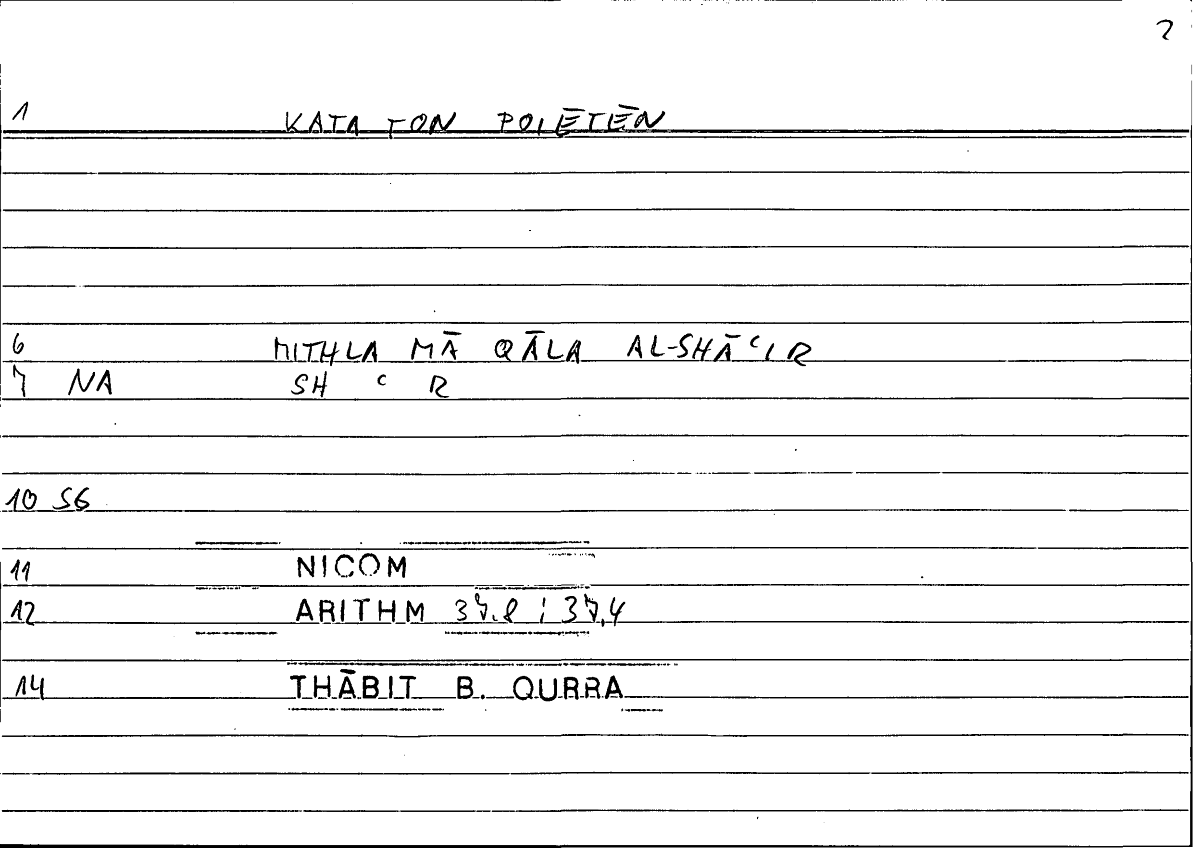 2
1 KATA TON POIĒTĒN
6 MITHLA MĀ QĀLA AL-SHĀʿIR
7 NA SH ʿ R
10 S6
11 NICOM
12 ARITHM 37.8 ; 37,4
14 THĀBIT B. QURRA